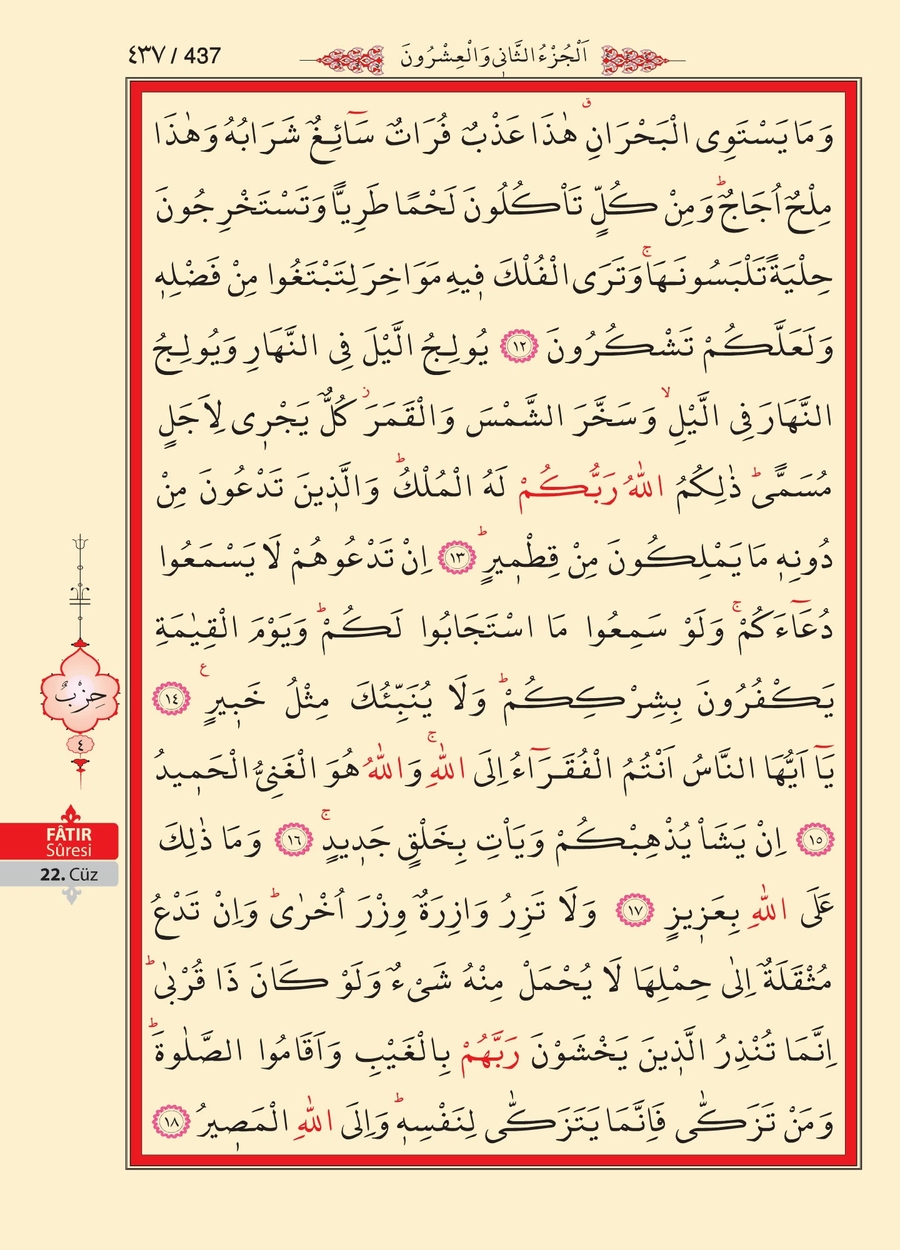 ٤٣٧ / 437
اَلْجُزْءُ الثَّانِي وَالْعِشْرُونَ
وَمَا يَسْتَوِى الْبَحْرَانِۗ هٰذَا عَذْبٌ فُرَاتٌ سَٓائِغٌ شَرَابُهُ وَهٰذَا
مِلْحٌ اُجَاجٌۜ وَمِنْ كُلٍّ تَأْكُلُونَ لَحْمًا طَرِيًّا وَتَسْتَخْرِجُونَ
حِلْيَةً تَلْبَسُونَهَاۚ وَتَرَى الْفُلْكَ فٖيهِ مَوَاخِرَ لِتَبْتَغُوا مِنْ فَضْلِهٖ
وَلَعَلَّكُمْ تَشْكُرُونَ ﴿١٢﴾ يُولِجُ الَّيْلَ فِى النَّهَارِ وَيُولِجُ
النَّهَارَ فِى الَّيْلِۙ وَسَخَّرَ الشَّمْسَ وَالْقَمَرَؗ كُلٌّ يَجْرٖى لِاَجَلٍ
مُسَمًّىۜ ذٰلِكُمُ اللّٰهُ رَبُّكُمْ لَهُ الْمُلْكُۜ وَالَّذٖينَ تَدْعُونَ مِنْ
دُونِهٖ مَا يَمْلِكُونَ مِنْ قِطْمٖيرٍۜ ﴿١٣﴾ اِنْ تَدْعُوهُمْ لَا يَسْمَعُوا
دُعَٓاءَكُمْۚ وَلَوْ سَمِعُوا مَا اسْتَجَابُوا لَكُمْۜ وَيَوْمَ الْقِيٰمَةِ
يَكْفُرُونَ بِشِرْكِكُمْۜ وَلَا يُنَبِّئُكَ مِثْلُ خَبٖيرٍࣖ ﴿١٤﴾
يَٓا اَيُّهَا النَّاسُ اَنْتُمُ الْفُقَرَٓاءُ اِلَى اللّٰهِۚ وَاللّٰهُ هُوَ الْغَنِىُّ الْحَمٖيدُ
﴿١٥﴾ اِنْ يَشَأْ يُذْهِبْكُمْ وَيَأْتِ بِخَلْقٍ جَدٖيدٍۚ ﴿١٦﴾ وَمَا ذٰلِكَ
عَلَى اللّٰهِ بِعَزٖيزٍ ﴿١٧﴾ وَلَا تَزِرُ وَازِرَةٌ وِزْرَ اُخْرٰىۜ وَاِنْ تَدْعُ
مُثْقَلَةٌ اِلٰى حِمْلِهَا لَا يُحْمَلْ مِنْهُ شَىْءٌ وَلَوْ كَانَ ذَا قُرْبٰىۜ
اِنَّمَا تُنْذِرُ الَّذٖينَ يَخْشَوْنَ رَبَّهُمْ بِالْغَيْبِ وَاَقَامُوا الصَّلٰوةَۜ
وَمَنْ تَزَكّٰى فَاِنَّمَا يَتَزَكّٰى لِنَفْسِهٖۜ وَاِلَى اللّٰهِ الْمَصٖيرُ ﴿١٨﴾
حِزْبٌ
٤
FÂTIR
Sûresi
22. Cüz